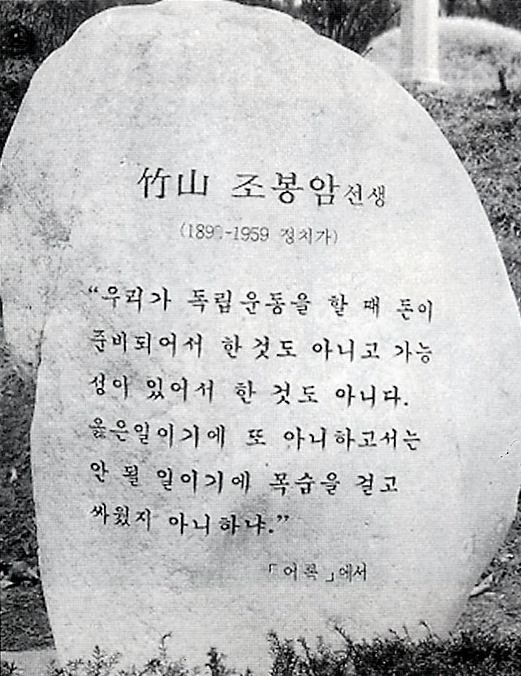 竹山 조봉암선생
(1899-1959 정치가)
“우리가 독립운동을 할 때 돈이
준비되어서 한 것도 아니고 가능
성이 있어서 한 것도 아니다.
옳은일이기에 또 아니하고서는
안 될 일이기에 목숨을 걸고
싸웠지 아니하냐.”
「어록」에서